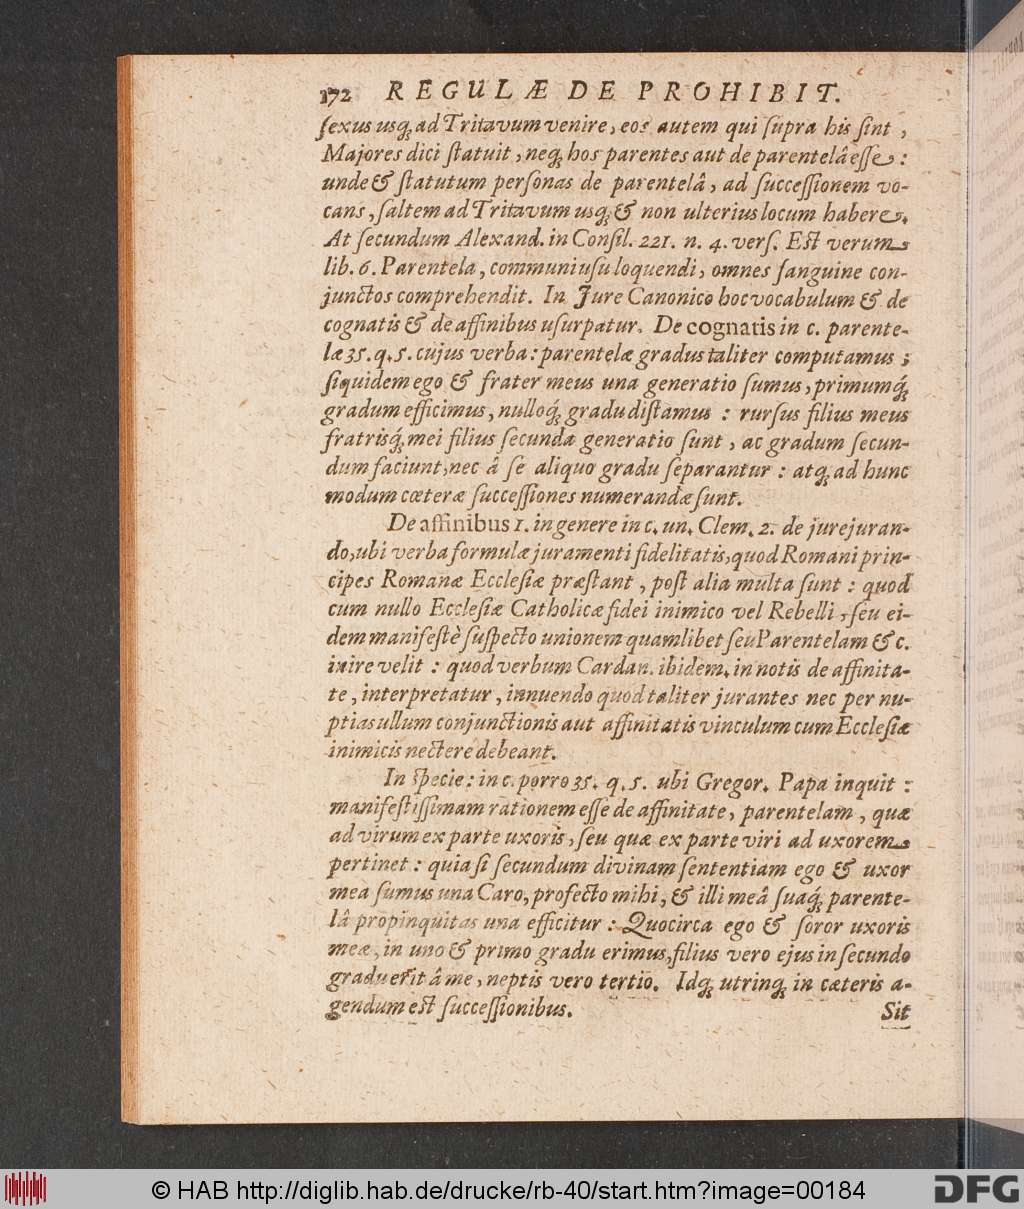 172 REGULÆ DE PROHIBIT.
ſexus usq́; ad Tritavum venire, eos autem qui ſupra his ſint,
Majores dici ſtatuit, neq́; hos parentes aut de parentelâ eſſe:
unde & ſtatutum perſonas de parentelâ, ad ſucceſſionem vo-
cans, ſaltem ad Tritavum usq́; & non ulterius locum habere.
At ſecundum Alexand. in Conſil. 221. n. 4. verſ. Eſt verum
lib. 6. Parentela, communi uſu loquendi, omnes ſanguine con-
junctos comprehendit. In Jure Canonico hoc vocabulum & de
cognatis & de affinibus uſurpatur. De cognatis in c. parente-
læ 35. q. 5. cujus verba: parentelæ gradus taliter computamus;
ſiquidem ego & frater meus una generatio ſumus, primumq́;
gradum efficimus, nulloq́; gradu diſtamus: rurſus filius meus
fratrisq́; mei filius ſecunda generatio ſunt, ac gradum ſecun-
dum faciunt, nec â ſe aliquo gradu ſeparantur: atq́; ad hunc
modum cœteræ ſucceſſiones numerandæ ſunt.
De affinibus 1. in genere in c. un. Clem. 2. de jurejuran-
do, ubi verba formulæ juramenti fidelitatis, quod Romani prin-
cipes Romanæ Eccleſiæ præſtant, poſt alia multa ſunt: quod
cum nullo Eccleſiæ Catholicæ fidei inimico vel Rebelli, ſeu ei-
dem manifeſtè ſuſpecto unionem quamlibet ſeu Parentelam & c.
inire velit: quod verbum Cardan. ibidem. in notis de affinita-
te, interpretatur, innuendo quod taliter jurantes nec per nu-
ptias ullum conjunctionis aut affinitatis vinculum cum Eccleſiæ
inimicis nectere debeant.
In ſpecie: in c. porro 35. q. 5. ubi Gregor. Papa inquit:
manifeſtiſſimam rationem eſſe de affinitate, parentelam, quæ
ad virum ex parte uxoris, ſeu quæ ex parte viri ad uxorem
pertinet: quia ſi ſecundum divinam ſententiam ego & uxor
mea ſumus una Caro, profecto mihi, & illi meâ ſuaq́; parente-
lâ propinquitas una efficitur: Quocirca ego & ſoror uxoris
meæ, in uno & primo gradu erimus, filius vero ejus in ſecundo
gradu erit â me, neptis vero tertio. Idq́; utrinq́; in cæteris a-
gendum eſt ſucceſſionibus.
Sit
© HAB http://diglib.hab.de/drucke/rb-40/start.htm?image=00184
DFG